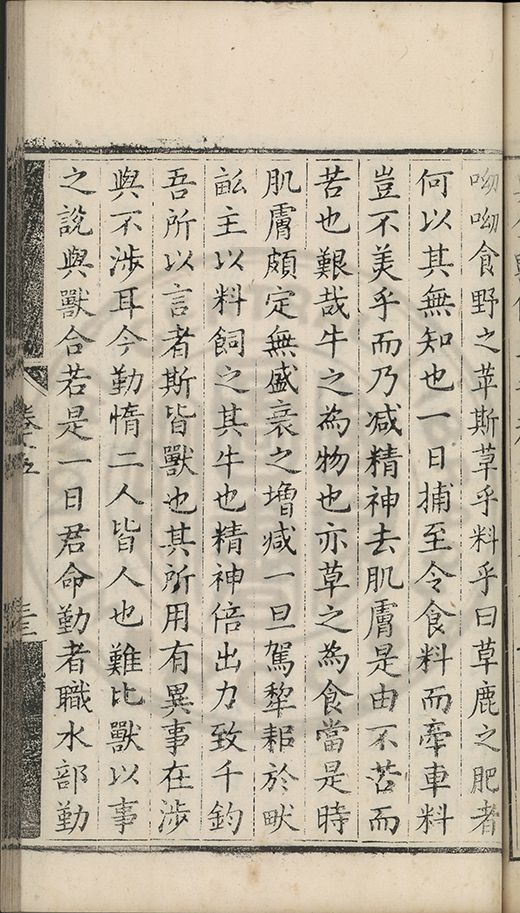 呦呦食野之苹斯草乎料乎曰草鹿之肥者
何以其無知也一日捕至令食料而牽車料
豈不美乎而乃减精神去肌膚是由不苦而
苦也艱哉牛之為物也亦草之為食當是時
肌膚頗定無盛衰之增减一旦駕犂耜於畎
畆主以料飼之其牛也精神倍出力致千鈞
吾所以言者斯皆獸也其所用有異事在涉
與不涉耳今勤惰二人皆人也難比獸以事
之說與獸合若是一日君命勤者職水部勤